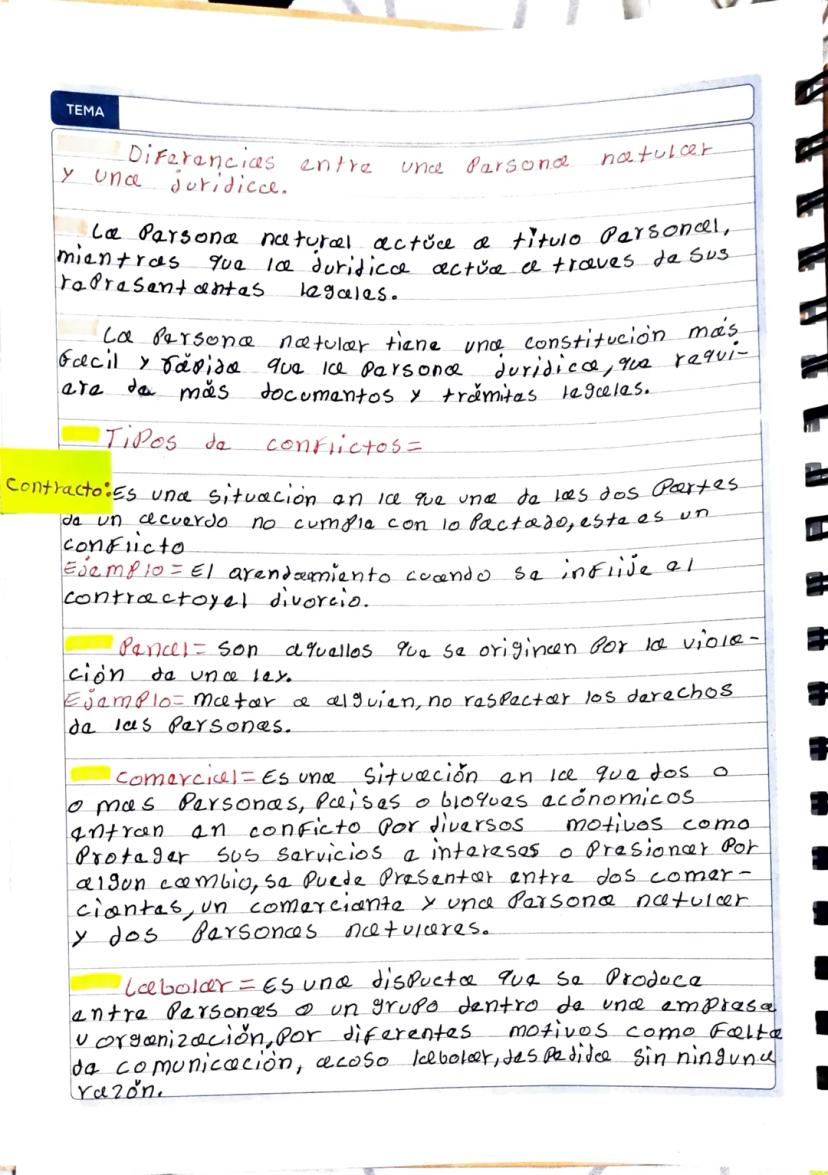 TEMA
Diferencias entre una Persona natular
y una juridica.
La Persona natural actúa a titulo Personal,
mientras que la juridica actúa a traves de sus
rapresentantes legales.
La Persona natular tiene una constitución más
facil y rápida que la Persona juridica, que requi-
ere de más documentos y trámites legales.
Tipos de conflictos=
Contracto: Es una situación en la que una de las dos Partes
de un acuerdo no cumple con lo Pactado, este es un
conflicto
Ejemplo= El arendamiento cuando se inflije el
contractoyel divorcio.
Penal= son aquellos que se originan Por la viola-
ción de una ley.
Ejemplo= matar a alguien, no respectar los derechos
de las Personas.
Comercial= Es una situación en la que dos o
o mas Personas, Paises o bloques acónomicos
entran en conficto Por diversos motivos como
Proteger sus servicios e intereses o Presionar Por
algun cambio, se Puede Presentar entre dos comer-
ciantes, un comerciante y una Persona natular
y dos Personas natulares.
Labolar= Es una disputa que se Produce
entre Personas o un grupo dentro de una empresa
u organización, Por diferentes motivos como Falta
de comunicación, acoso labolar, despedida sin ninguna
razón.